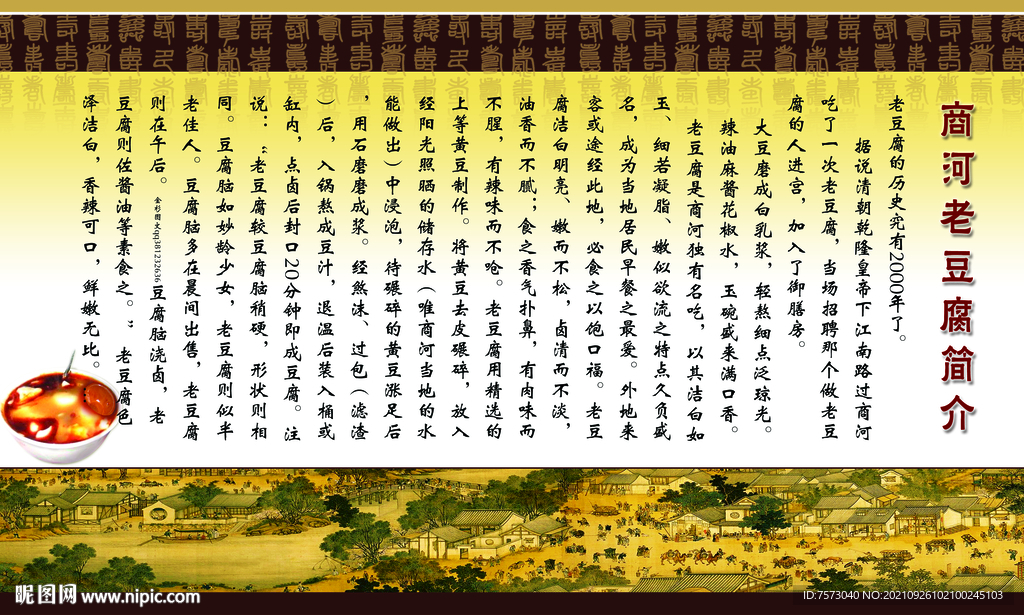 商河老豆腐简介
老豆腐的历史究有2000年了。
据说清朝乾隆皇帝下江南路过商河
吃了一次老豆腐，当场招聘那个做老豆
腐的人进宫，加入了御膳房。
大豆磨成白乳浆，轻熬细点泛琼光。
辣油麻酱花椒水，玉碗盛来满口香。
老豆腐是商河独有名吃，以其洁白如
玉、细若凝脂、嫩似欲流之特点久负盛
名，成为当地居民早餐之最爱。外地来
客或途经此地，必食之以饱口福。老豆
腐洁白明亮、嫩而不松，卤清而不淡，
油香而不腻；食之香气扑鼻，有肉味而
不腥，有辣味而不呛。老豆腐用精选的
上等黄豆制作。将黄豆去皮碾碎，放入
经阳光照晒的储存水（唯商河当地的水
能做出）中浸泡，待碾碎的黄豆涨足后
，用石磨磨成浆。经熬沫、过包（滤渣
）后，入锅熬成豆汁，退温后装入桶或
缸内，点卤后封口20分钟即成豆腐。注
说：“老豆腐较豆腐脑稍硬，形状则相
同。豆腐脑如妙龄少女，老豆腐则似半
老佳人。豆腐脑多在晨间出售，老豆腐
则在午后。金彩图文qq381232636豆腐脑浇卤，老
豆腐则佐酱油等素食之。”老豆腐色
泽洁白，香辣可口，鲜嫩无比。
昵图网 www.nipic.com
ID:7573040 NO:20210926102100245103